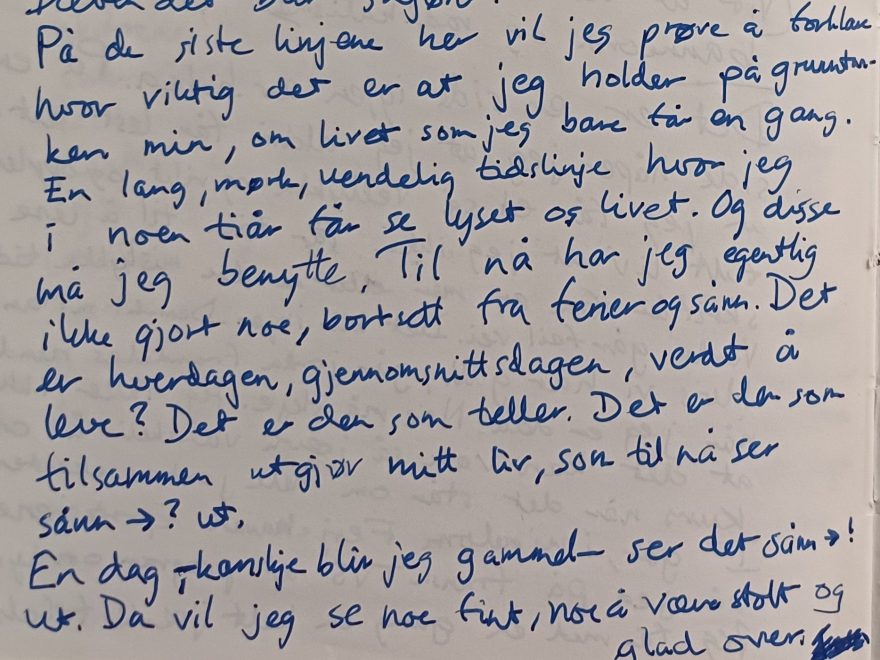 På de siste linjene her vil jeg prøve å forklare
hvor viktig det er at jeg holder på gruuntan-
ken min, om livet som jeg bare får en gang.
En lang, mørk, uendelig tidslinje hvor jeg
i noen tiår får se lyset og livet. Og disse
må jeg benytte. Til nå har jeg egentlig
ikke gjort noe, bortsett fra ferier og sånn. Det
er hverdagen, gjennomsnittsdagen, verdt å
leve? Det er den som teller. Det er den som
tilsammen utgjør mitt liv, som til nå ser
sånn →? ut.
En dag, kanskje blir jeg gammel - ser det sånn →!
ut. Da vil jeg se noe fint, noe å være stolt og
glad over.